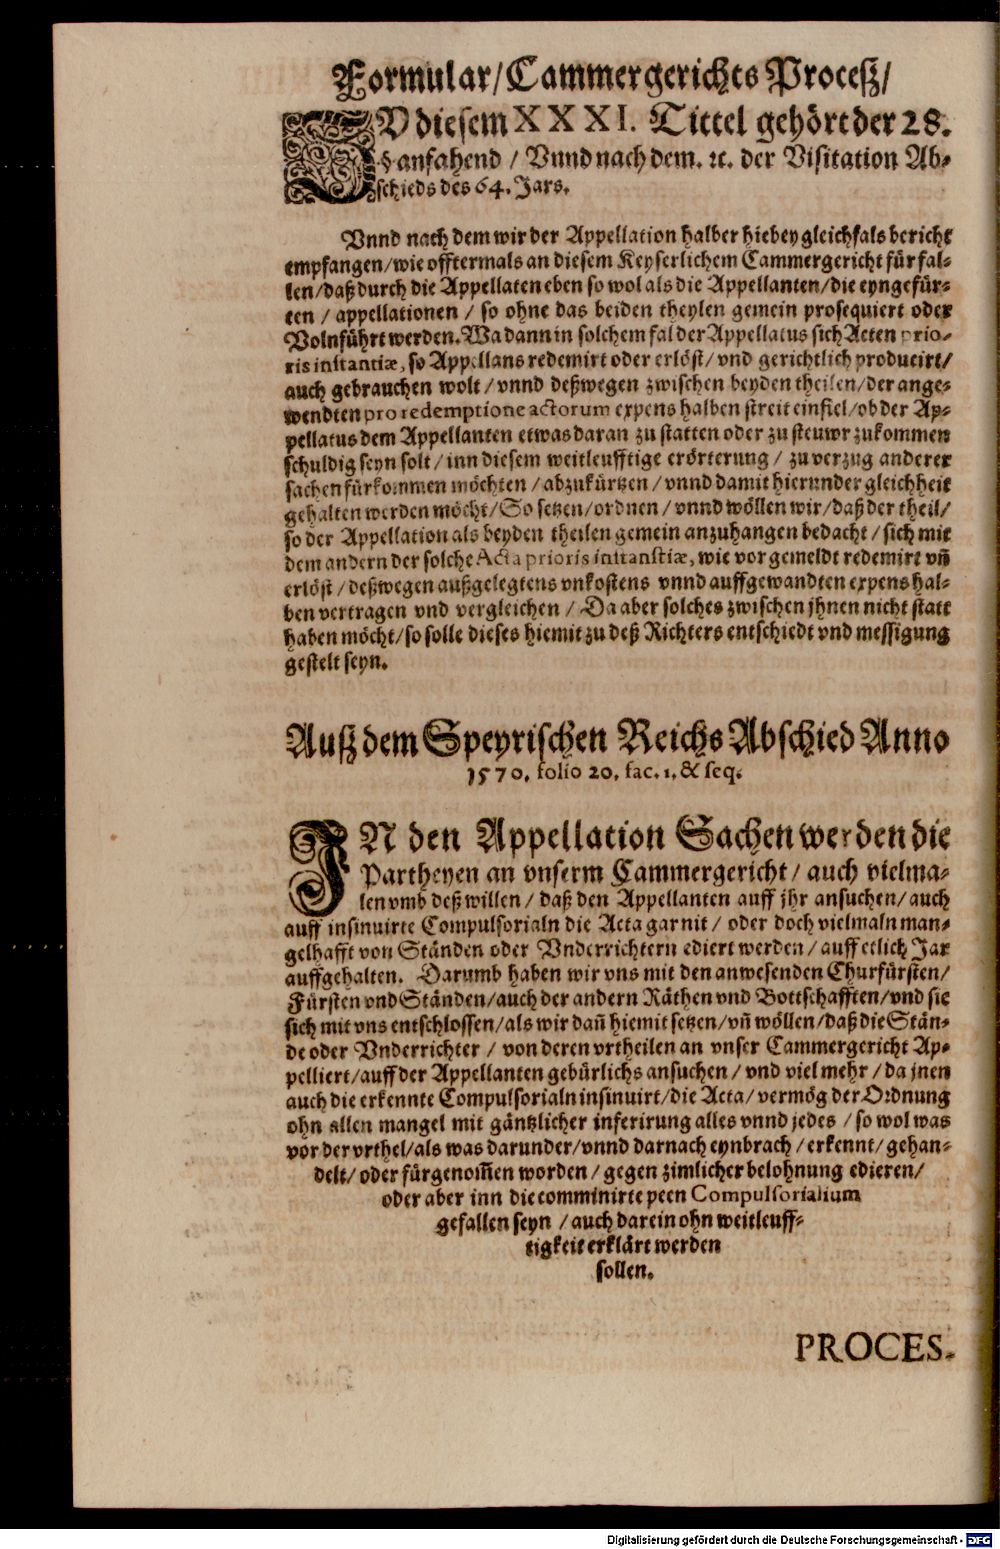 Formular/Cammergerichts Proceß/
ZU diesem XXXI. Tittel gehört der 28.
§ anfahend / Vnnd nach dem. ꝛc. der Visitation Ab-
schieds des 64. Jars.
Vnnd nach dem wir der Appellation halber hiebey gleichfals bericht
empfangen/wie offtermals an diesem Keyserlichem Cammergericht für fal-
len/daß durch die Appellaten eben so wol als die Appellanten/die eyngefür-
ten / appellationen / so ohne das beiden theylen gemein prosequiert oder
Volnführt werden. Wa dann in solchem fal der Appellatus sich Acten prio-
ris instantiæ, so Appellans redemirt oder erlöst/ vnd gerichtlich producirt/
auch gebrauchen wolt / vnnd deßwegen zwischen beyden theilen/der ange-
wendten pro redemptione actorum expens halben streit einfiel/ob der Ap-
pellatus dem Appellanten etwas daran zu statten oder zu steuwr zukommen
schuldig seyn solt / inn diesem weitleufftige erörterung / zu verzug anderer
sachen fürkommen möchten / abzukürtzen / vnnd damit hierunder gleichheit
gehalten werden möcht/ So setzen/ordnen / vnnd wöllen wir/ daß der theil/
so der Appellation als beyden theilen gemein anzuhangen bedacht / sich mit
dem andern der solche Acta prioris inttanstiæ, wie vor gemeldt redemirt vñ
erlöst / deßwegen außgelegtens vnkostens vnnd auffgewandten expens hal-
ben vertragen vnd vergleichen / Da aber solches zwischen jhnen nicht statt
haben möcht/so solle dieses hiemit zu deß Richters entschiedt vnd messigung
gestelt seyn.
Auß dem Speyrischen Reichs Abschied Anno
1570. folio 20. fac. 1. & seq.
IN den Appellation Sachen werden die
Partheyen an vnserm Cammergericht / auch vielma-
len vmb deß willen / daß den Appellanten auff jhr ansuchen/ auch
auff insinuirte Compulsorialn die Acta gar nit / oder doch vielmaln man-
gelhafft von Ständen oder Vnderrichtern ediert werden / auff etlich Jar
auffgehalten. Darumb haben wir vns mit den anwesenden Churfürsten/
Fürsten vnd Ständen/auch der andern Räthen vnd Bottschafften/vnd sie
sich mit vns entschlossen/als wir dañ hiemit setzen/vñ wöllen/daß die Stän-
de oder Vnderrichter / von deren vrtheilen an vnser Cammergericht Ap-
pelliert/auff der Appellanten gebürlichs ansuchen / vnd viel mehr / da jnen
auch die erkennte Compulsorialn insinuirt/die Acta/ vermög der Ordnung
ohn allen mangel mit gäntzlicher inferirung alles vnnd jedes / so wol was
vor der vrthel/als was darunder/vnnd darnach eynbrach / erkennt/ gehan-
delt/ oder fürgenom̃en worden / gegen zimlicher belohnung edieren/
oder aber inn die comminirte peen Compulsorialium
gefallen seyn / auch darein ohn weitleuff-
tigkeit erklärt werden
sollen.
PROCES-
Digitalisierung gefördert durch die Deutsche Forschungsgemeinschaft - DFG